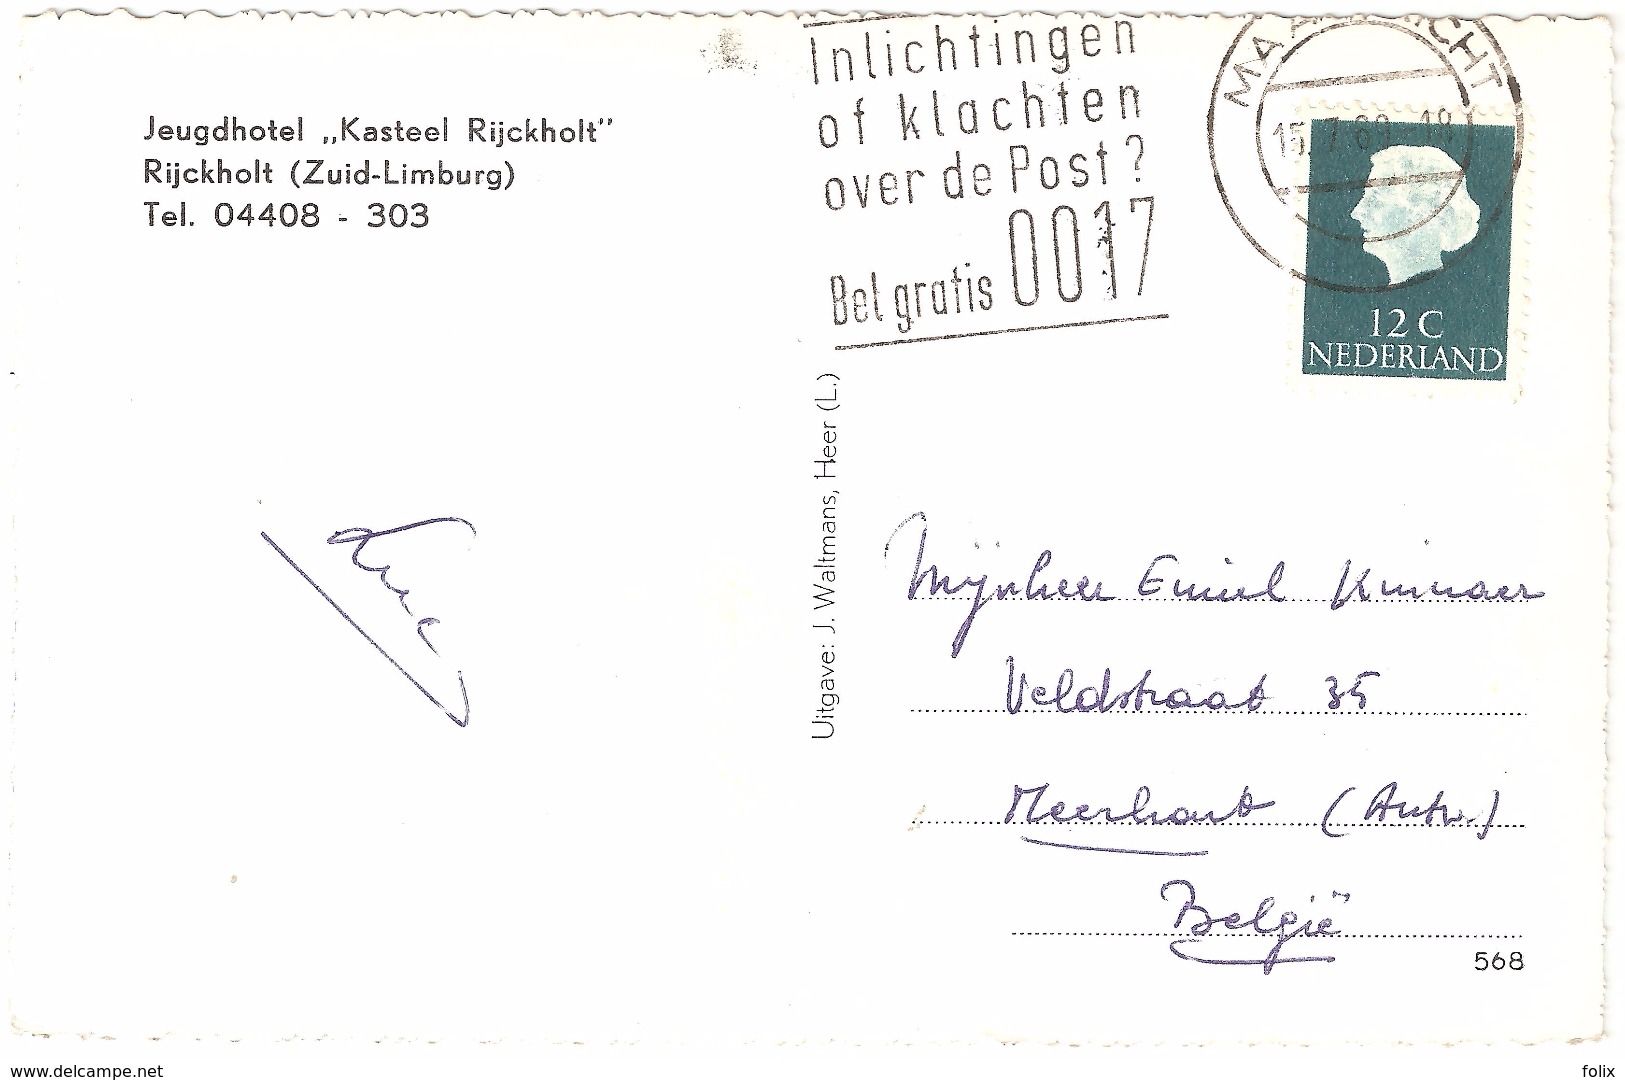 Jeugdhotel „Kasteel Rijckholt"
Rijckholt (Zuid-Limburg)
Tel. 04408 - 303
Inlichtingen
of klachten
over de Post?
Bel gratis 0017
15.7.69-18
12 C
NEDERLAND
Uitgave: J. Waltmans, Heer (L.)
Mijnheer Emiel Kinnaer
Veldstraat 35
Meerhout (Antw)
België
568
www.delcampe.net
folix